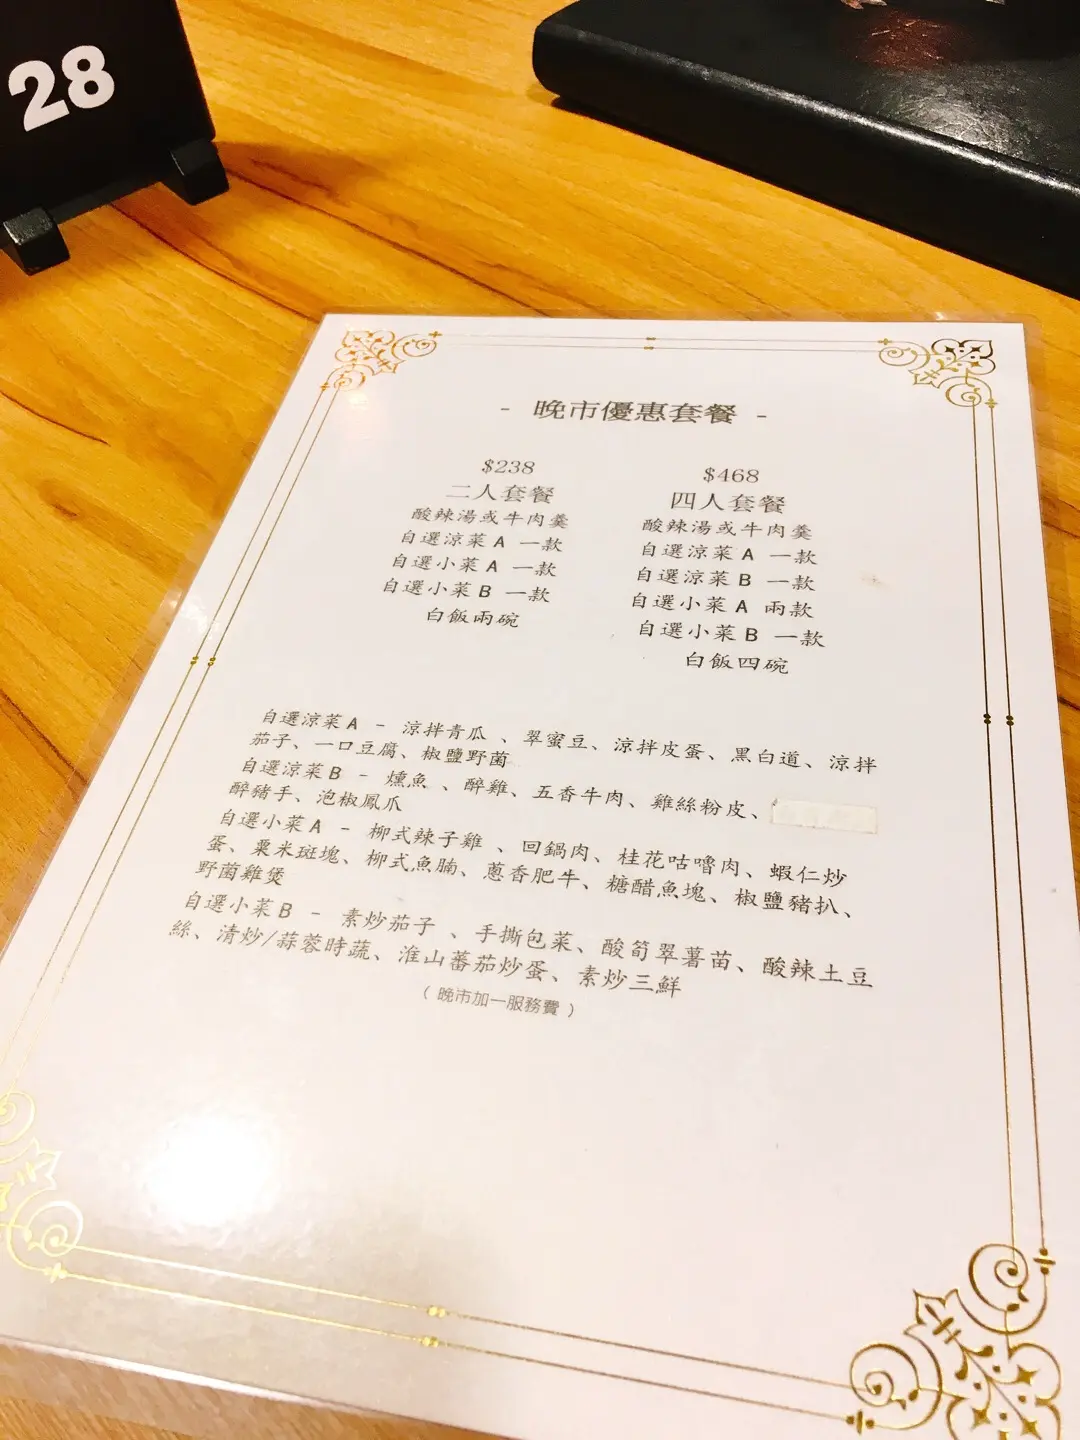 28
- 晚市優惠套餐 -
$238
二人套餐
酸辣湯或牛肉羹
自選涼菜A 一款
自選小菜A 一款
自選小菜B 一款
白飯兩碗
$468
四人套餐
酸辣湯或牛肉羹
自選涼菜A 一款
自選涼菜B 一款
自選小菜A 兩款
自選小菜B 一款
白飯四碗
自選涼菜A - 涼拌青瓜、翠蜜豆、涼拌皮蛋、黑白道、涼拌
茄子、一口豆腐、椒鹽野菌
自選涼菜B - 燻魚、醉雞、五香牛肉、雞絲粉皮、
醉豬手、泡椒鳳爪
自選小菜A - 柳式辣子雞、回鍋肉、桂花咕嚕肉、蝦仁炒
蛋、粟米斑塊、柳式魚腩、蔥香肥牛、糖醋魚塊、椒鹽豬扒、
野菌雞煲
自選小菜B - 素炒茄子、手撕包菜、酸筍翠薯苗、酸辣土豆
絲、清炒/蒜蓉時蔬、淮山蕃茄炒蛋、素炒三鮮
( 晚市加一服務費 )